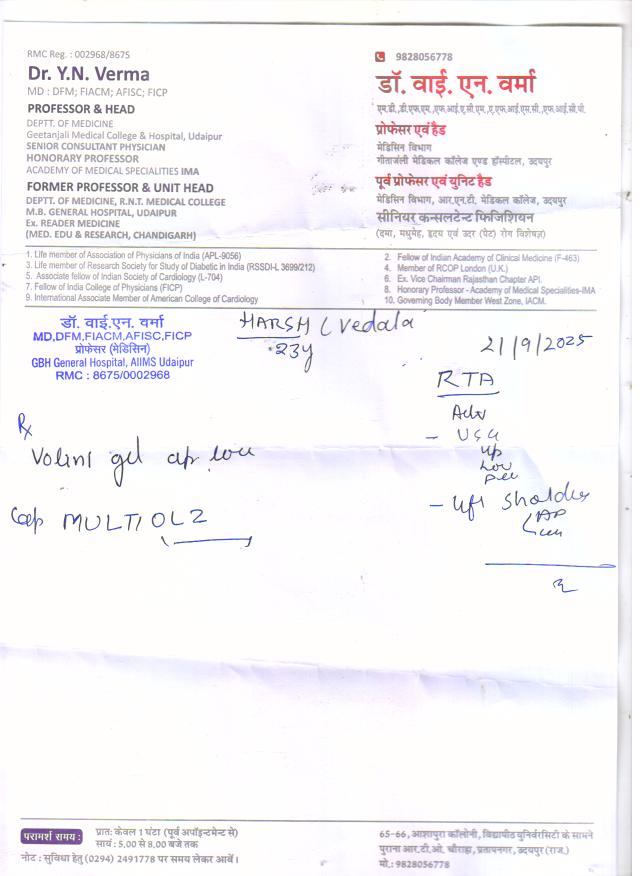 RMC Reg. : 002968/8675
Dr. Y.N. Verma
MD : DFM; FIACM; AFISC; FICP
PROFESSOR & HEAD
DEPTT. OF MEDICINE
Geetanjali Medical College & Hospital, Udaipur
SENIOR CONSULTANT PHYSICIAN
HONORARY PROFESSOR
ACADEMY OF MEDICAL SPECIALITIES IMA
FORMER PROFESSOR & UNIT HEAD
DEPTT. OF MEDICINE, R.N.T. MEDICAL COLLEGE
M.B. GENERAL HOSPITAL, UDAIPUR
Ex. READER MEDICINE
(MED. EDU & RESEARCH, CHANDIGARH)
9828056778
डॉ. वाई. एन. वर्मा
एम.डी.,डी.एफ.एम.,एफ.आई.ए.सी.एम.,ए.एफ.आई.एस.सी.,एफ.आई.सी.पी.
प्रोफेसर एवं हैड
मेडिसिन विभाग
गीतांजली मेडिकल कॉलेज एण्ड हॉस्पीटल, उदयपुर
पूर्व प्रोफेसर एवं युनिट हैड
मेडिसिन विभाग, आर.एन.टी. मेडिकल कॉलेज, उदयपुर
सीनियर कन्सलटेन्ट फिजिशियन
(दमा, मधुमेह, हृदय एवं उदर (पेट) रोग विशेषज्ञ)
1. Life member of Association of Physicians of India (APL-9056)
3. Life member of Research Society for Study of Diabetic in India (RSSDI-L 3699/212)
5. Associate fellow of Indian Society of Cardiology (L-704)
7. Fellow of India College of Physicians (FICP)
9. International Associate Member of American College of Cardiology
2. Fellow of Indian Academy of Clinical Medicine (F-463)
4. Member of RCOP London (U.K.)
6. Ex. Vice Chairman Rajasthan Chapter API.
8. Honorary Professor - Academy of Medical Specialities-IMA
10. Governing Body Member West Zone, IACM.
डॉ. वाई.एन. वर्मा
MD,DFM,FIACM,AFISC,FICP
प्रोफेसर (मेडिसिन)
GBH General Hospital, AIIMS Udaipur
RMC : 8675/0002968
HARSH (Vedala
23y
21/9/2025
RTA
Adv
- USG
up
- Sholder
AP
Rx
Volini gel
Cap MULTIOLZ
परामर्श समय :
प्रात: केवल 1 घंटा (पूर्व अपॉइन्टमेन्ट से)
सायं : 5.00 से 8.00 बजे तक
नोट : सुविधा हेतु (0294) 2491778 पर समय लेकर आवें।
65-66, आशापुरा कॉलोनी, विद्यापीठ युनिवरसिटी के सामने
पुराना आर.टी.ओ. चौराहा, प्रतापनगर, उदयपुर (राज.)
मो.: 9828056778